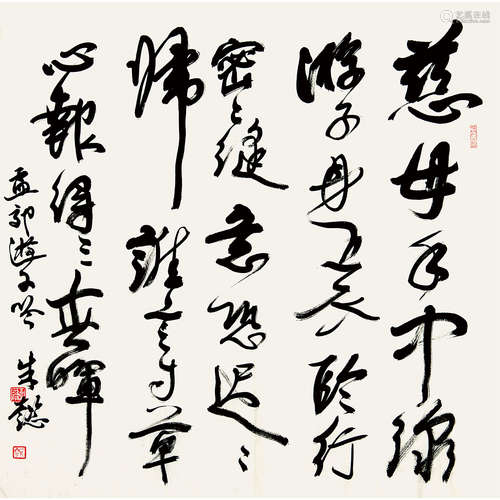 慈母手中線
游子身上衣臨行
密密縫意恐遲遲
歸誰言寸草
心報得三春暉
孟郊游子吟
朱懿